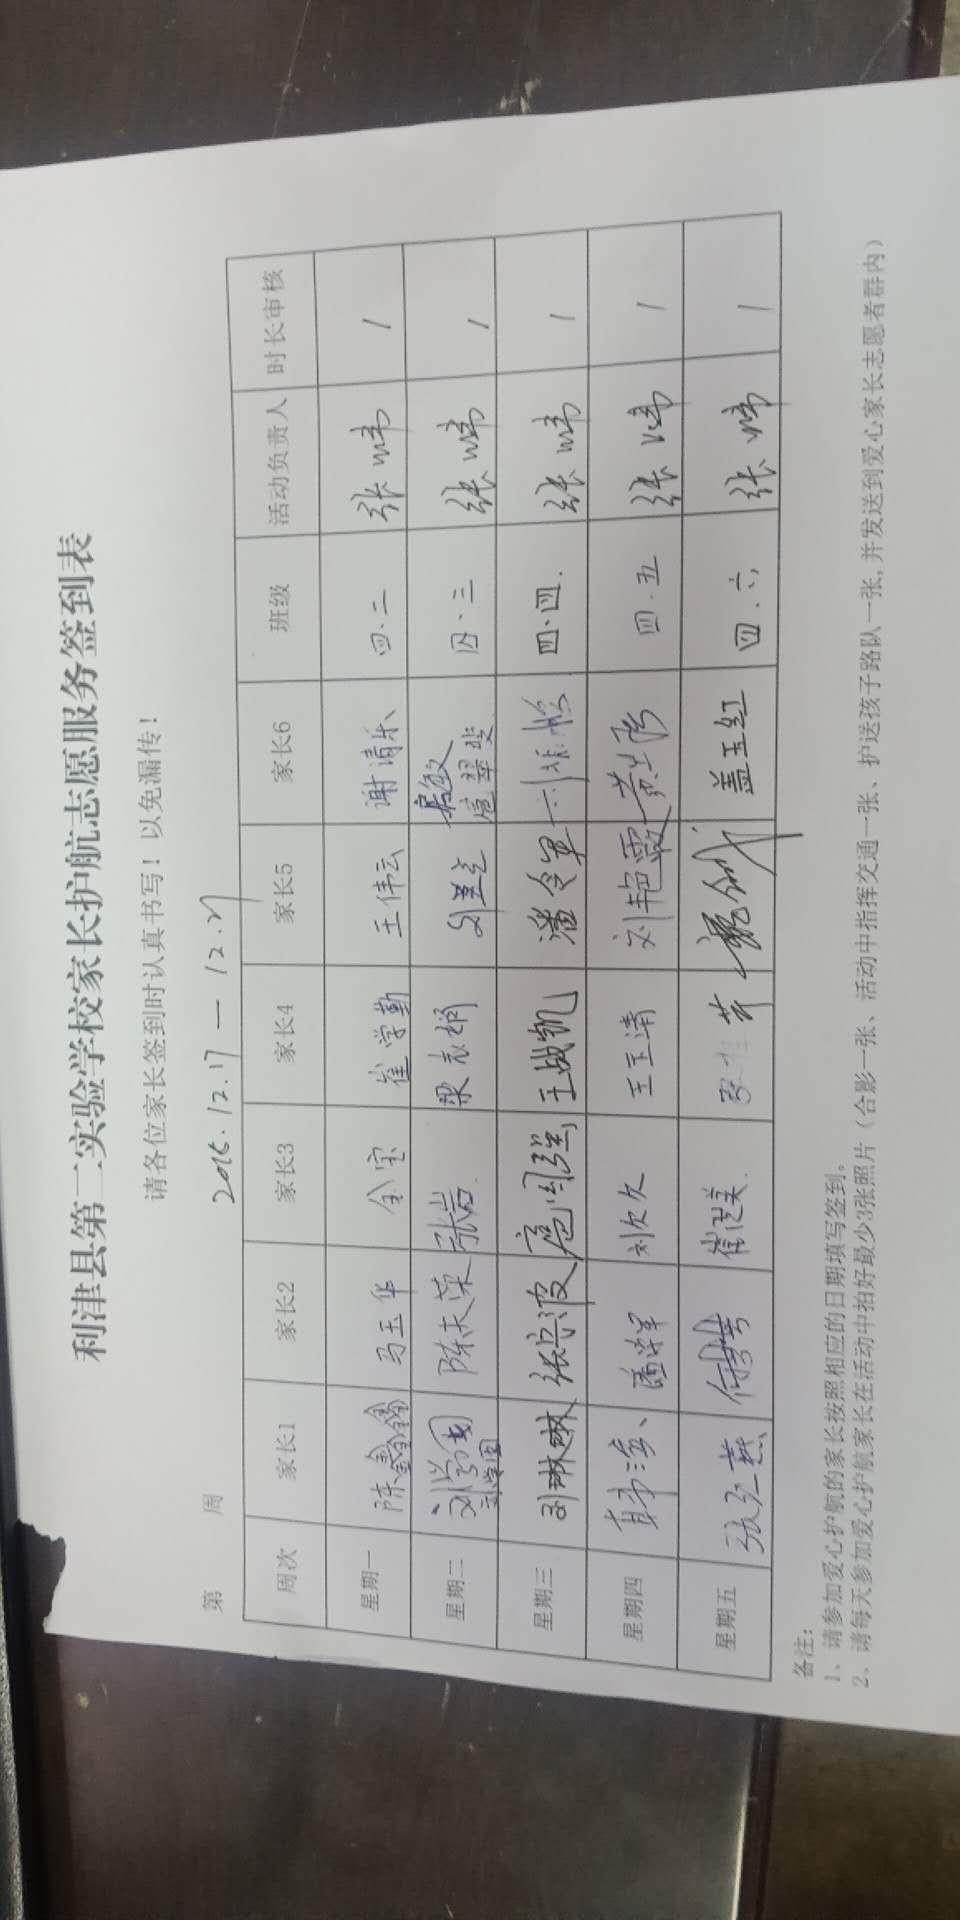 利津县第二实验学校家长护航志愿服务签到表
请各位家长签到时认真书写！以免漏传！
第 周 12.17—12.21
周次 家长1 家长2 家长3 家长4 家长5 家长6 班级 活动负责人 时长审核
星期一 陈鑫鑫 马玉华 全宝 崔学勤 王伟云 谢清乐 四.二 张 1
星期二 刘学国 陈夫荣 张岩 梁 娟 刘 敏 扈翠 四.三 张 1
星期三 刘琳琳 张兵波 扈国强 王城凯 潘令军 四.四. 张 1
星期四 海 潘 军 刘欠欠 王玉清 刘艳霞 四.五 张 1
星期五 张 燕 付 崔 美 芹 盖玉红 四.六 张 1
备注：
1、请参加爱心护航的家长按照相应的日期填写签到。
2、请每天参加爱心护航家长在活动中拍好最少3张照片（合影一张、活动中指挥交通一张、护送孩子路队一张，并发送到爱心家长志愿者群内）